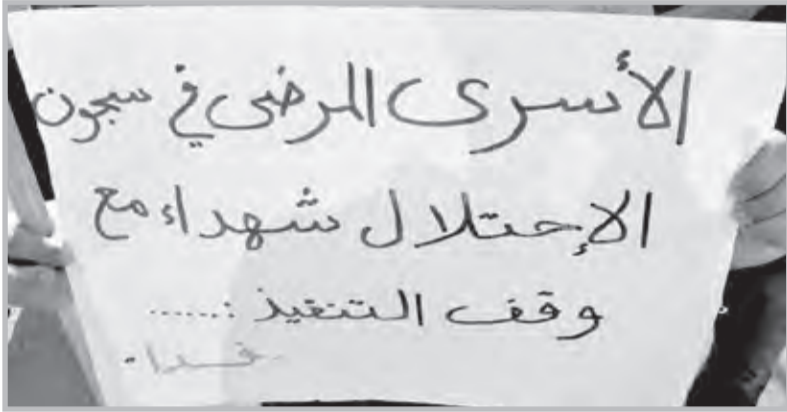 الأسرى المرضى في سجون
الإحتلال شهداء مع
وقف التنفيذ :......